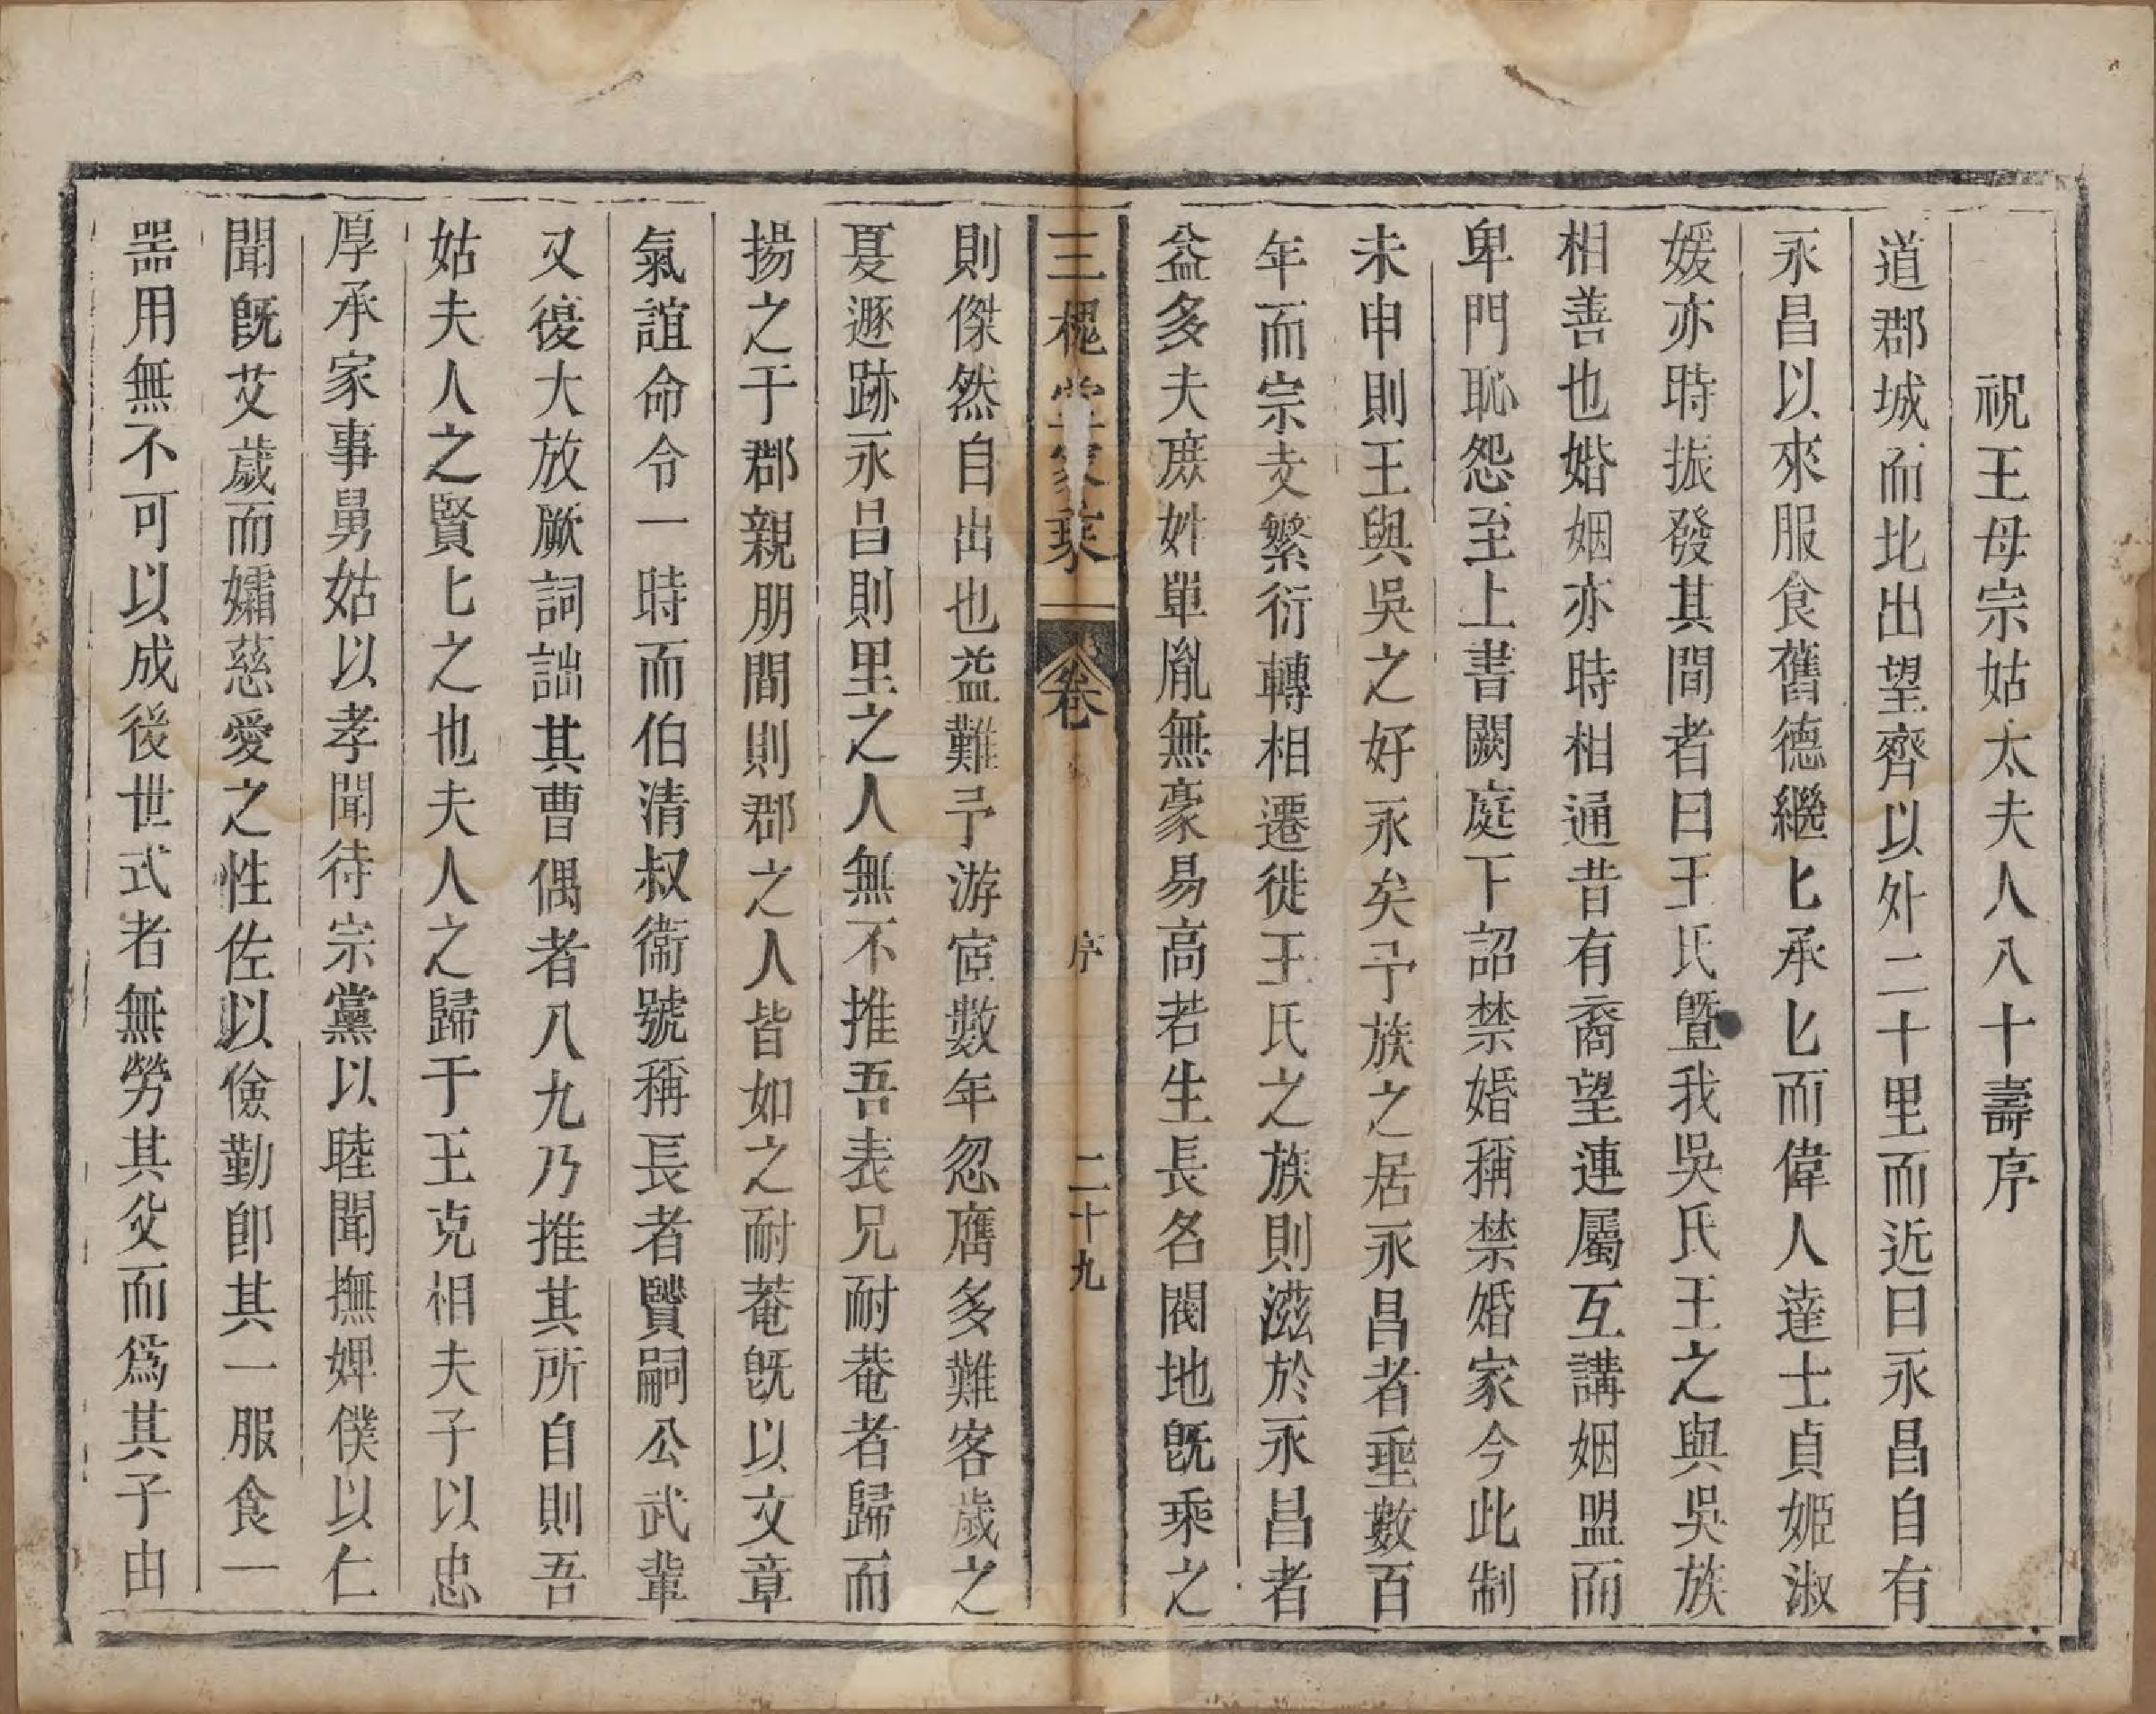 祝王母宗姑太夫人八十壽序
道郡城而北出望齊以外二十里而近曰永昌自有
永昌以來服食舊德繼匕承匕而偉人達士貞姬淑
媛亦時振發其間者曰王氏曁我吳氏王之與吳族
相善也婚姻亦時相通昔有裔望連屬互講姻盟而
卑門恥怨至上書闕庭下詔禁婚稱禁婚家今此制
未申則王與吳之好永矣予族之居永昌者垂數百
年而宗支繁衍轉相遷徙王氏之族則滋於永昌者
益多夫庶姓單胤無豪易高若生長名閥地旣乘之
三槐堂家乘 卷 序 二十九
則傑然自出也益難予游宦數年忽膺多難客歲之
夏遯跡永昌則里之人無不推吾表兄耐菴者歸而
揚之于郡親朋間則郡之人皆如之耐菴旣以文章
氣誼命令一時而伯清叔衞號稱長者贒嗣公武輩
又復大放厥詞詘其曹偶者八九乃推其所自則吾
姑夫人之賢匕之也夫人之歸于王克相夫子以忠
厚承家事舅姑以孝聞待宗黨以睦聞撫婢僕以仁
聞旣艾歲而孀慈愛之性佐以儉勤卽其一服食一
噐用無不可以成後世式者無勞其父而爲其子由